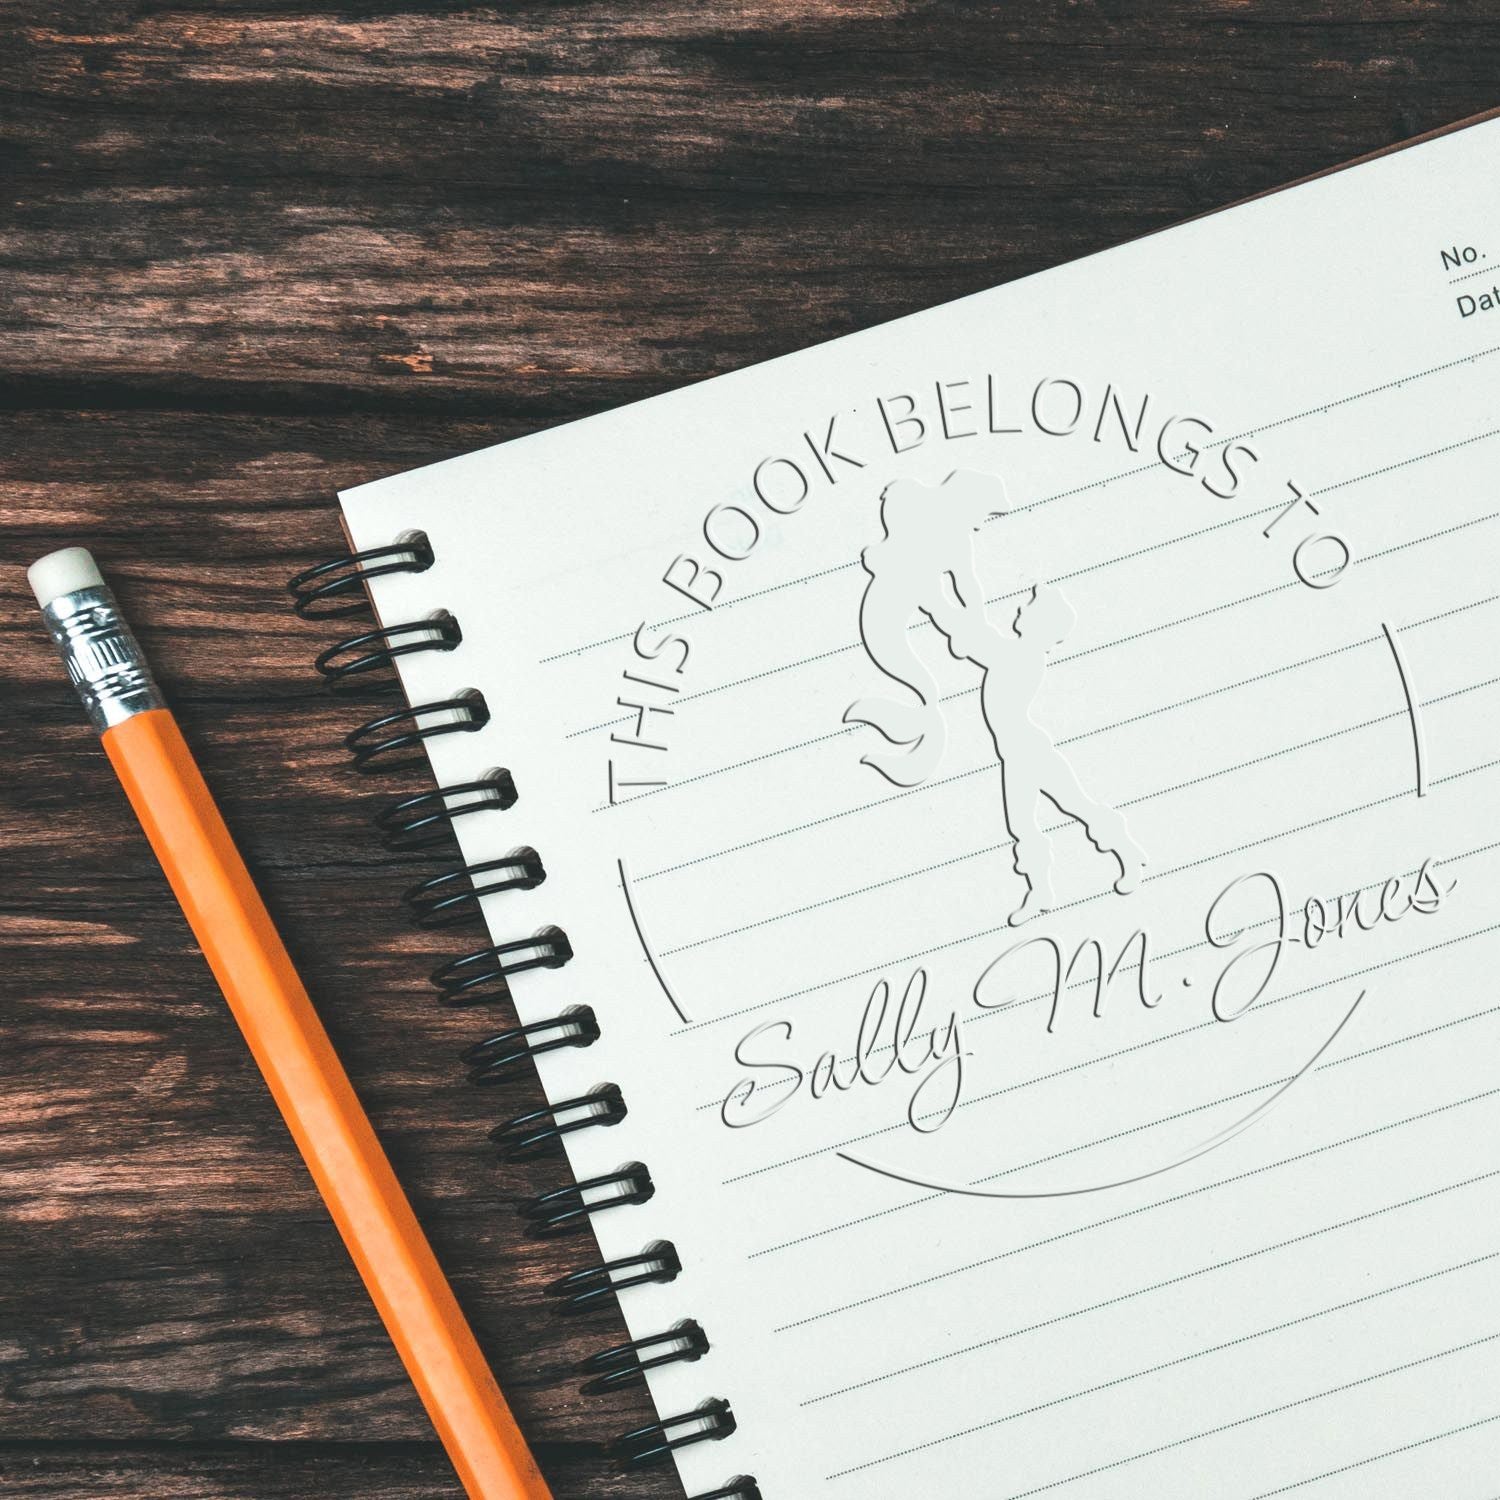 No.
Dat
THIS BOOK BELONGS TO
Sally M. Jones